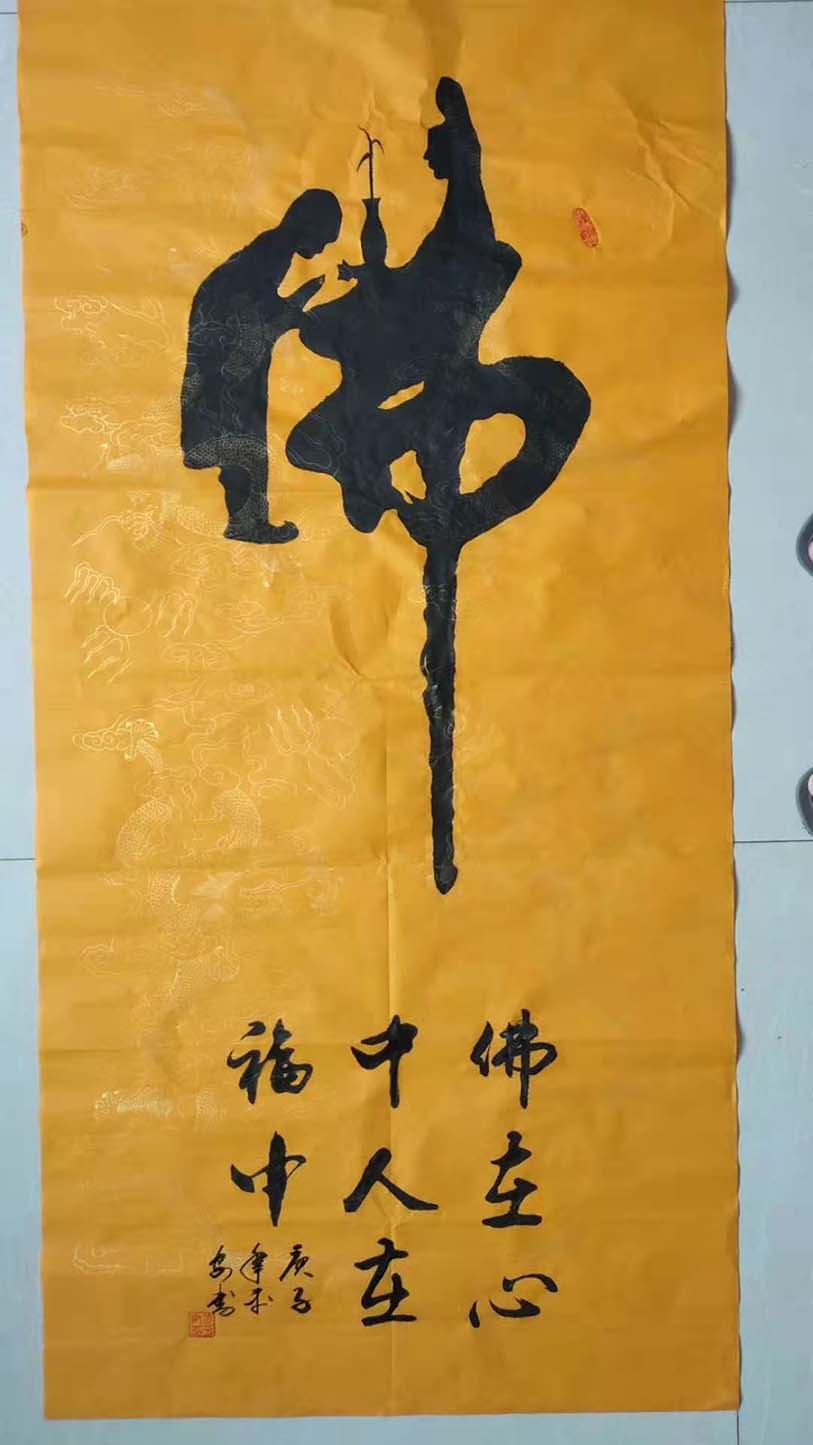 佛
佛在心
中人在
福中
庚子
年平
安書